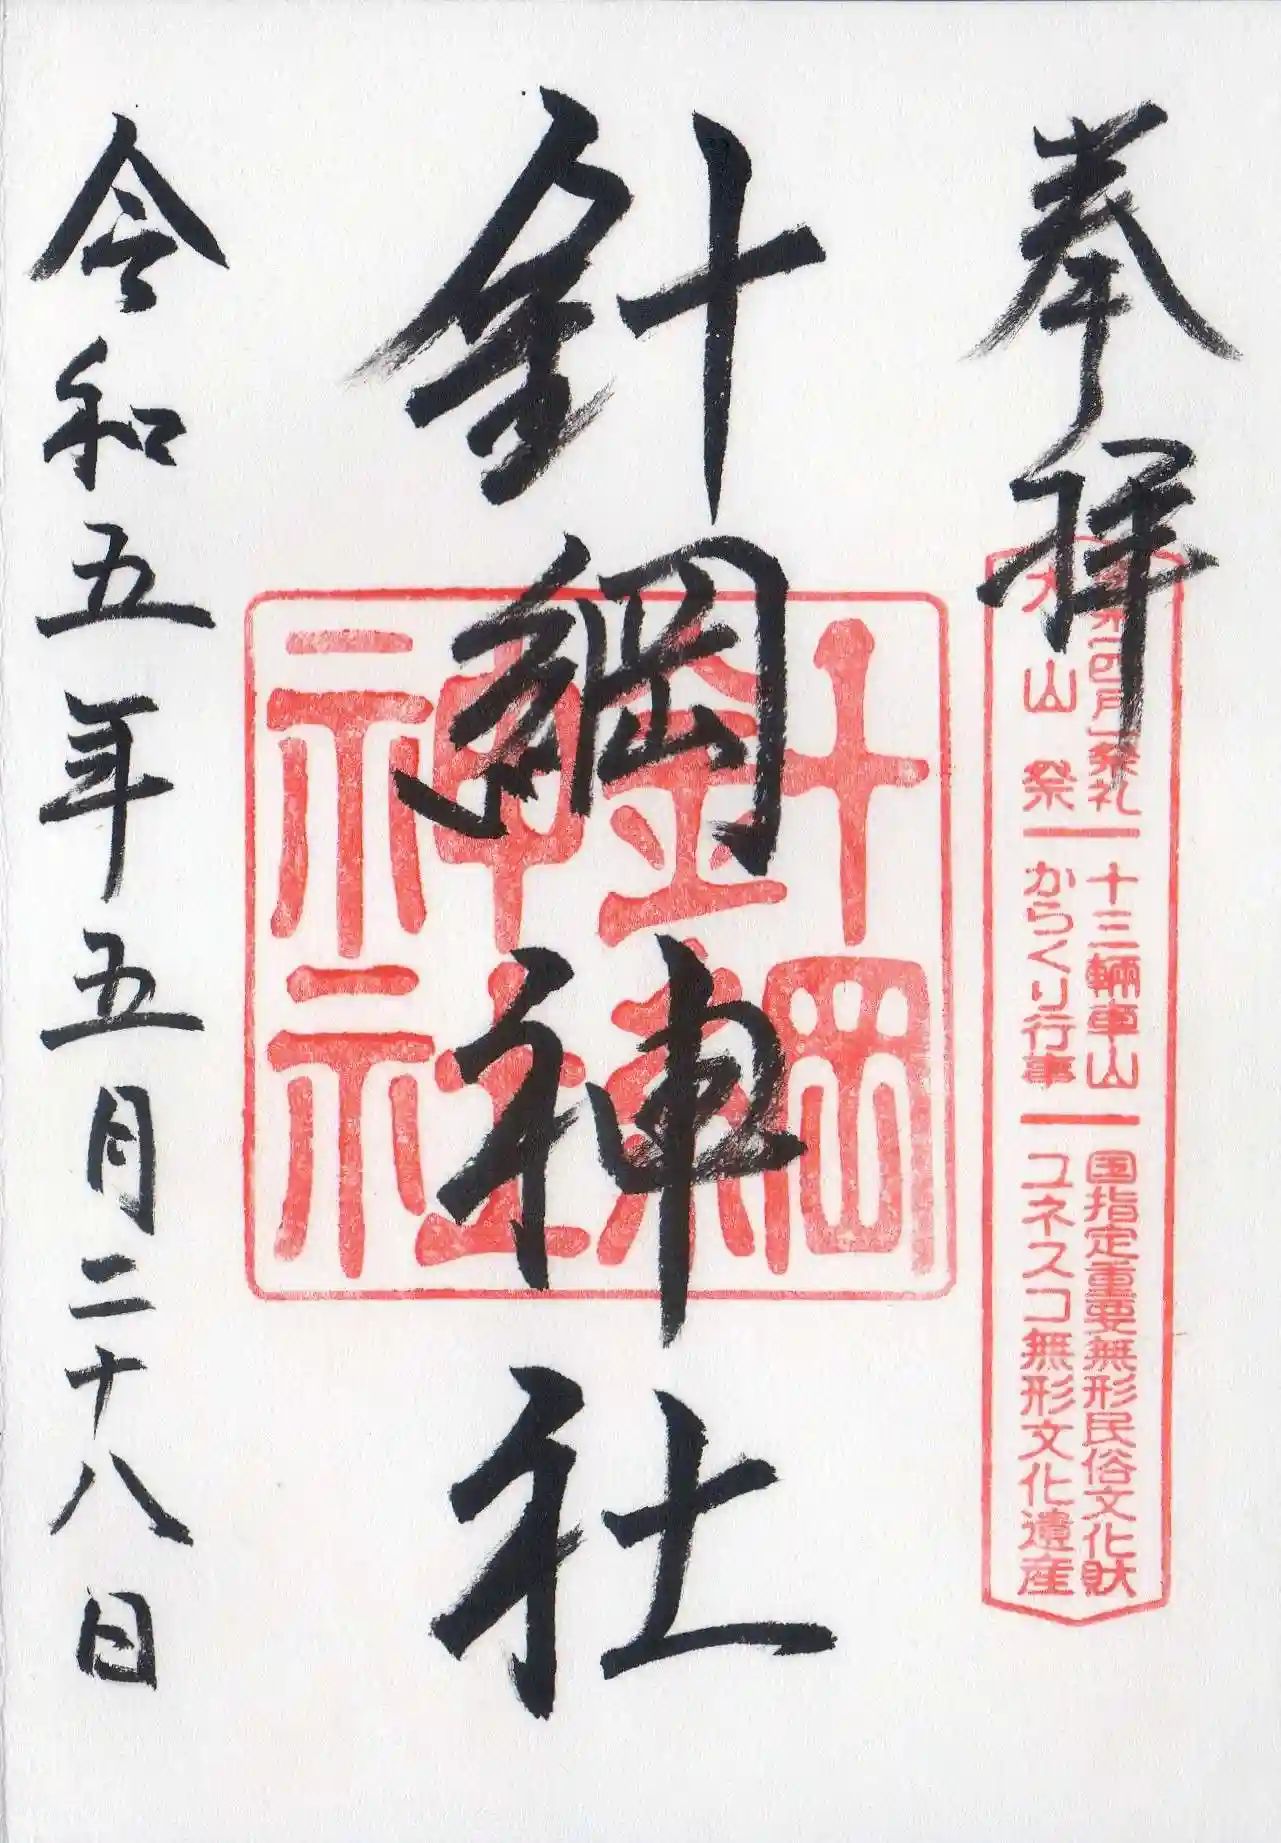 奉拝
四月 祭礼 十三輛車山 国指定重要無形民俗文化財
犬山祭 からくり行事 ユネスコ無形文化遺産
針綱神社
針綱神社
令和五年五月二十八日